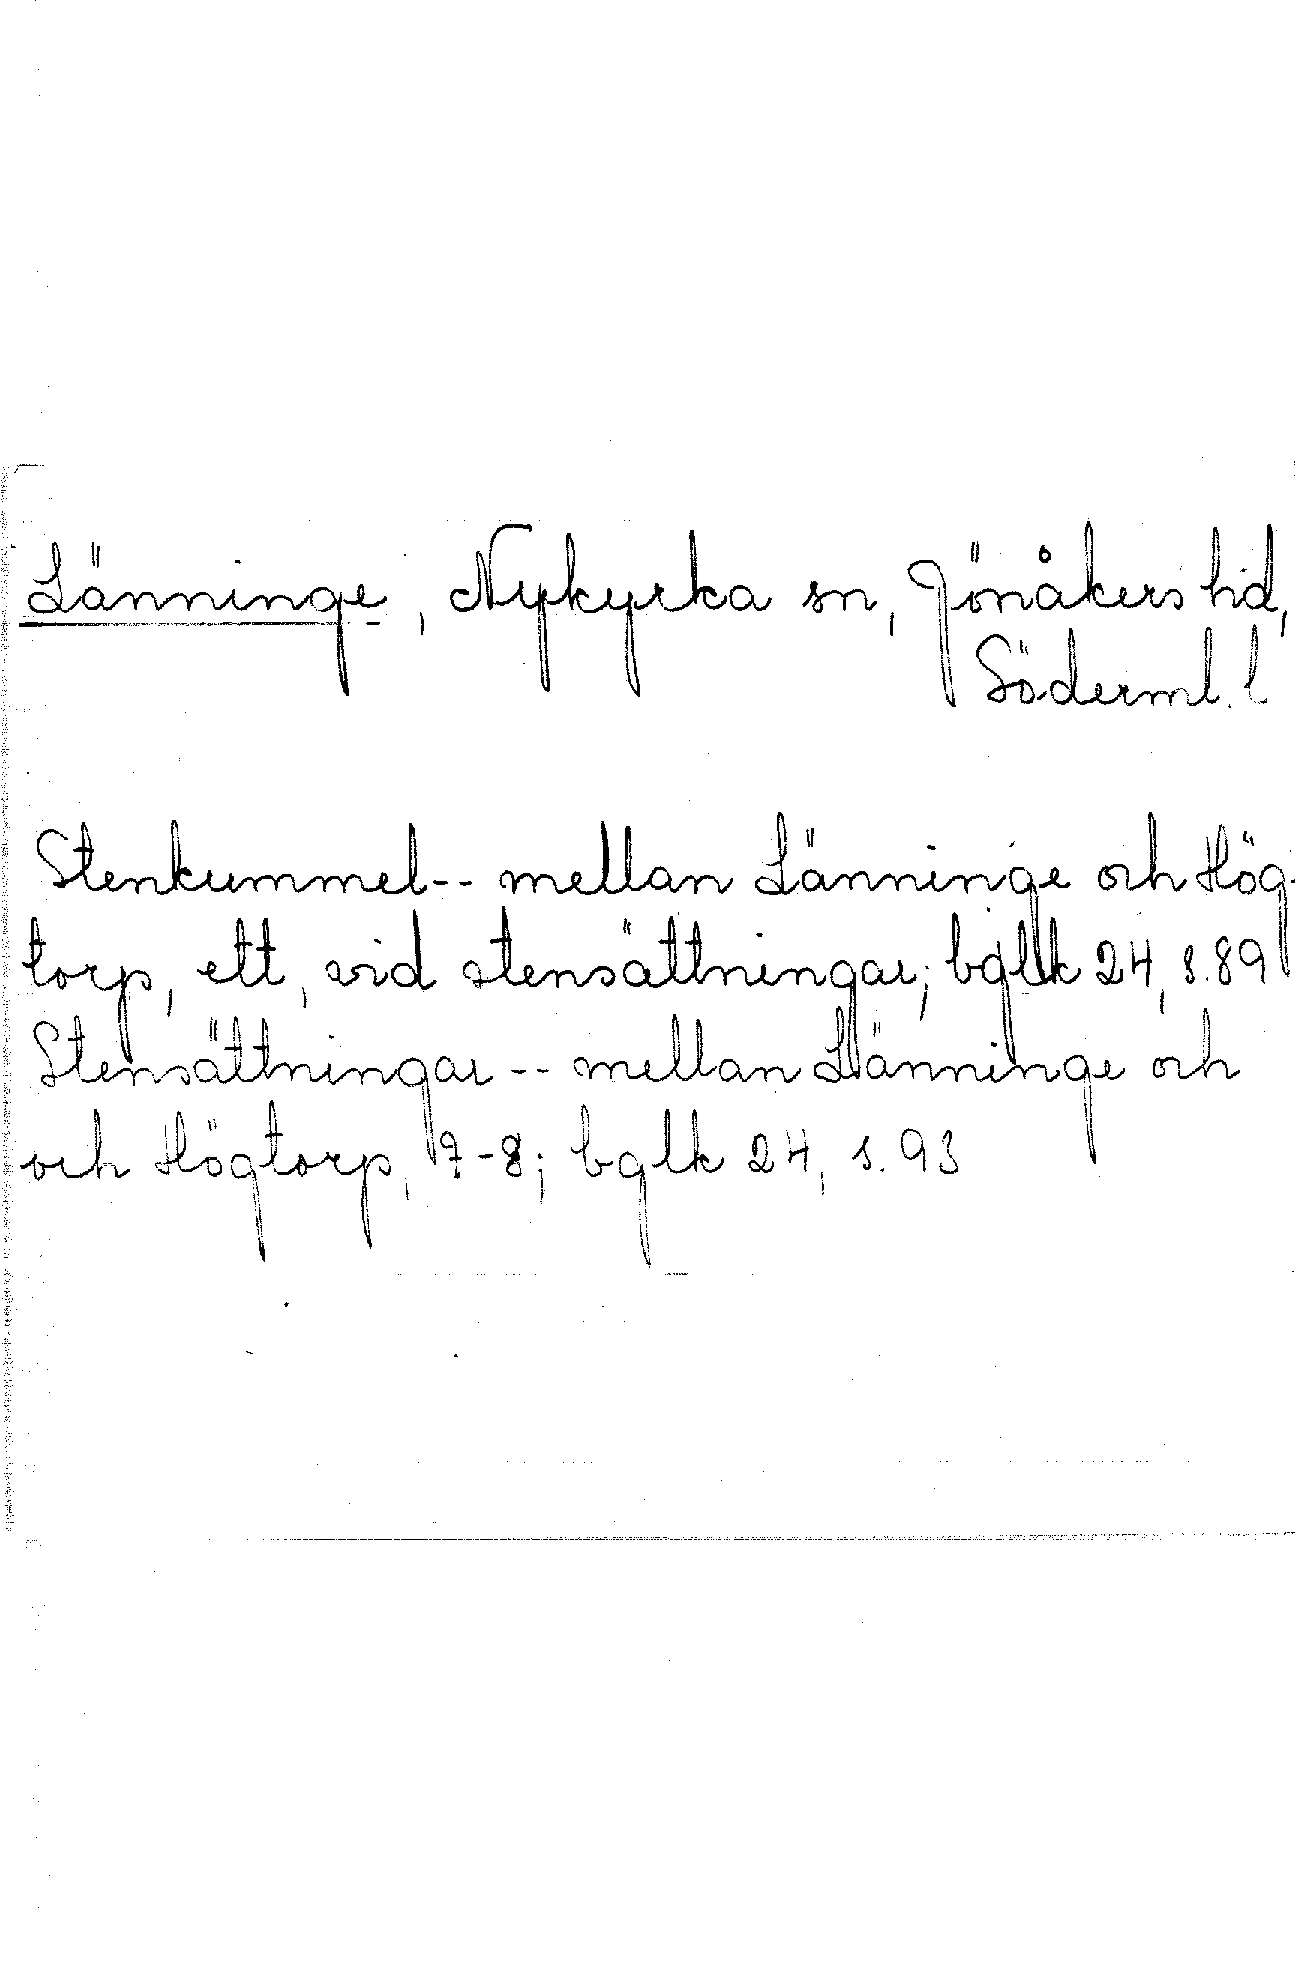 Länninge, Nykyrka sn, Jönåkers hd,
Söderml. l
Stenkummel-- mellan Länninge och Hög-
torp, ett, vid stensättningar; bglk 24, s.89
Stensättningar -- mellan Länninge och
och Högtorp, 7-8; bglk 24, s.93